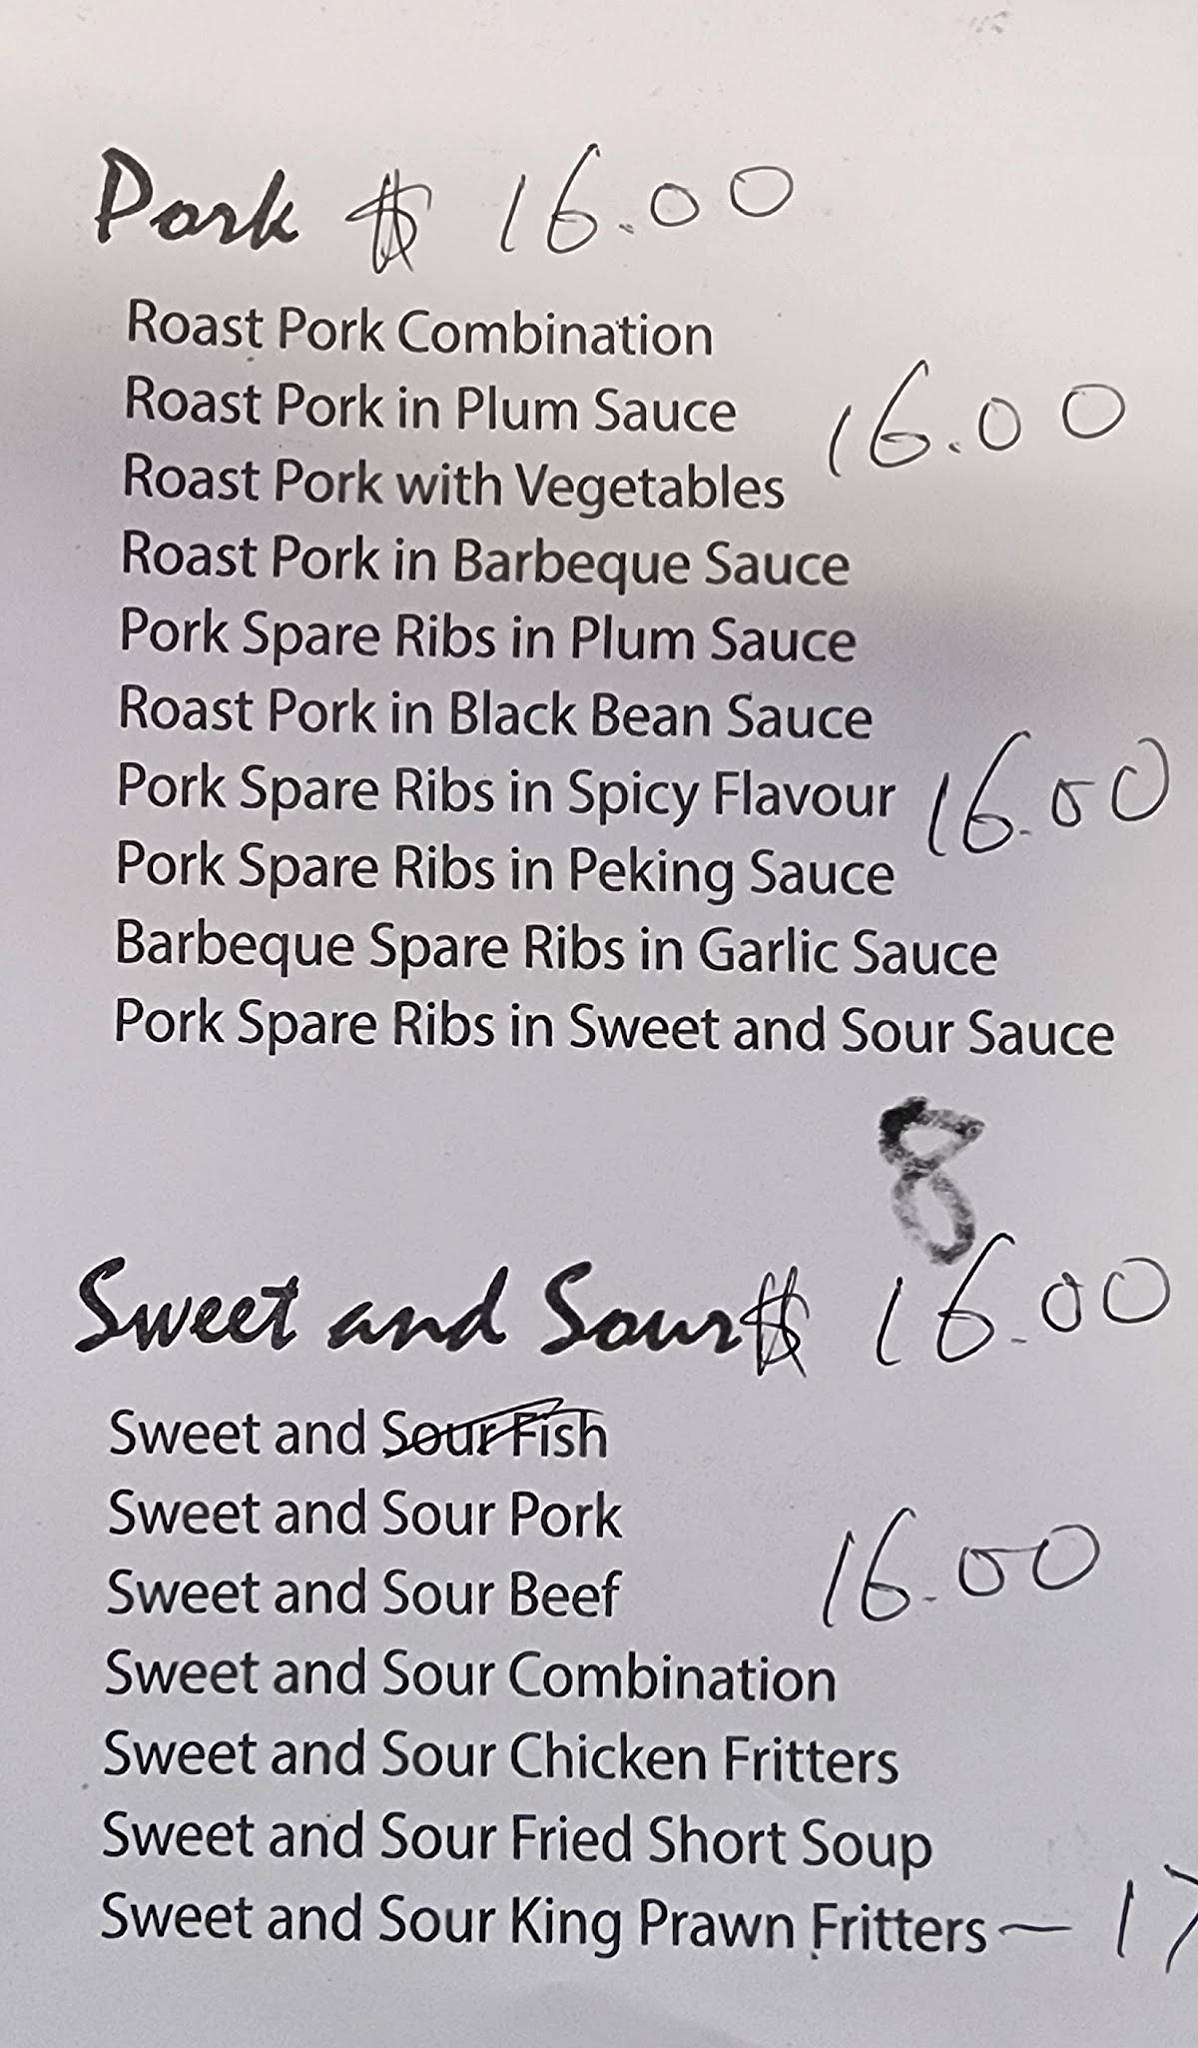 Pork $ 16.00
Roast Pork Combination
Roast Pork in Plum Sauce 16.00
Roast Pork with Vegetables
Roast Pork in Barbeque Sauce
Pork Spare Ribs in Plum Sauce
Roast Pork in Black Bean Sauce
Pork Spare Ribs in Spicy Flavour 16.00
Pork Spare Ribs in Peking Sauce
Barbeque Spare Ribs in Garlic Sauce
Pork Spare Ribs in Sweet and Sour Sauce
8
Sweet and Sour $ 16.00
Sweet and Sour Fish
Sweet and Sour Pork
Sweet and Sour Beef 16.00
Sweet and Sour Combination
Sweet and Sour Chicken Fritters
Sweet and Sour Fried Short Soup
Sweet and Sour King Prawn Fritters — 17